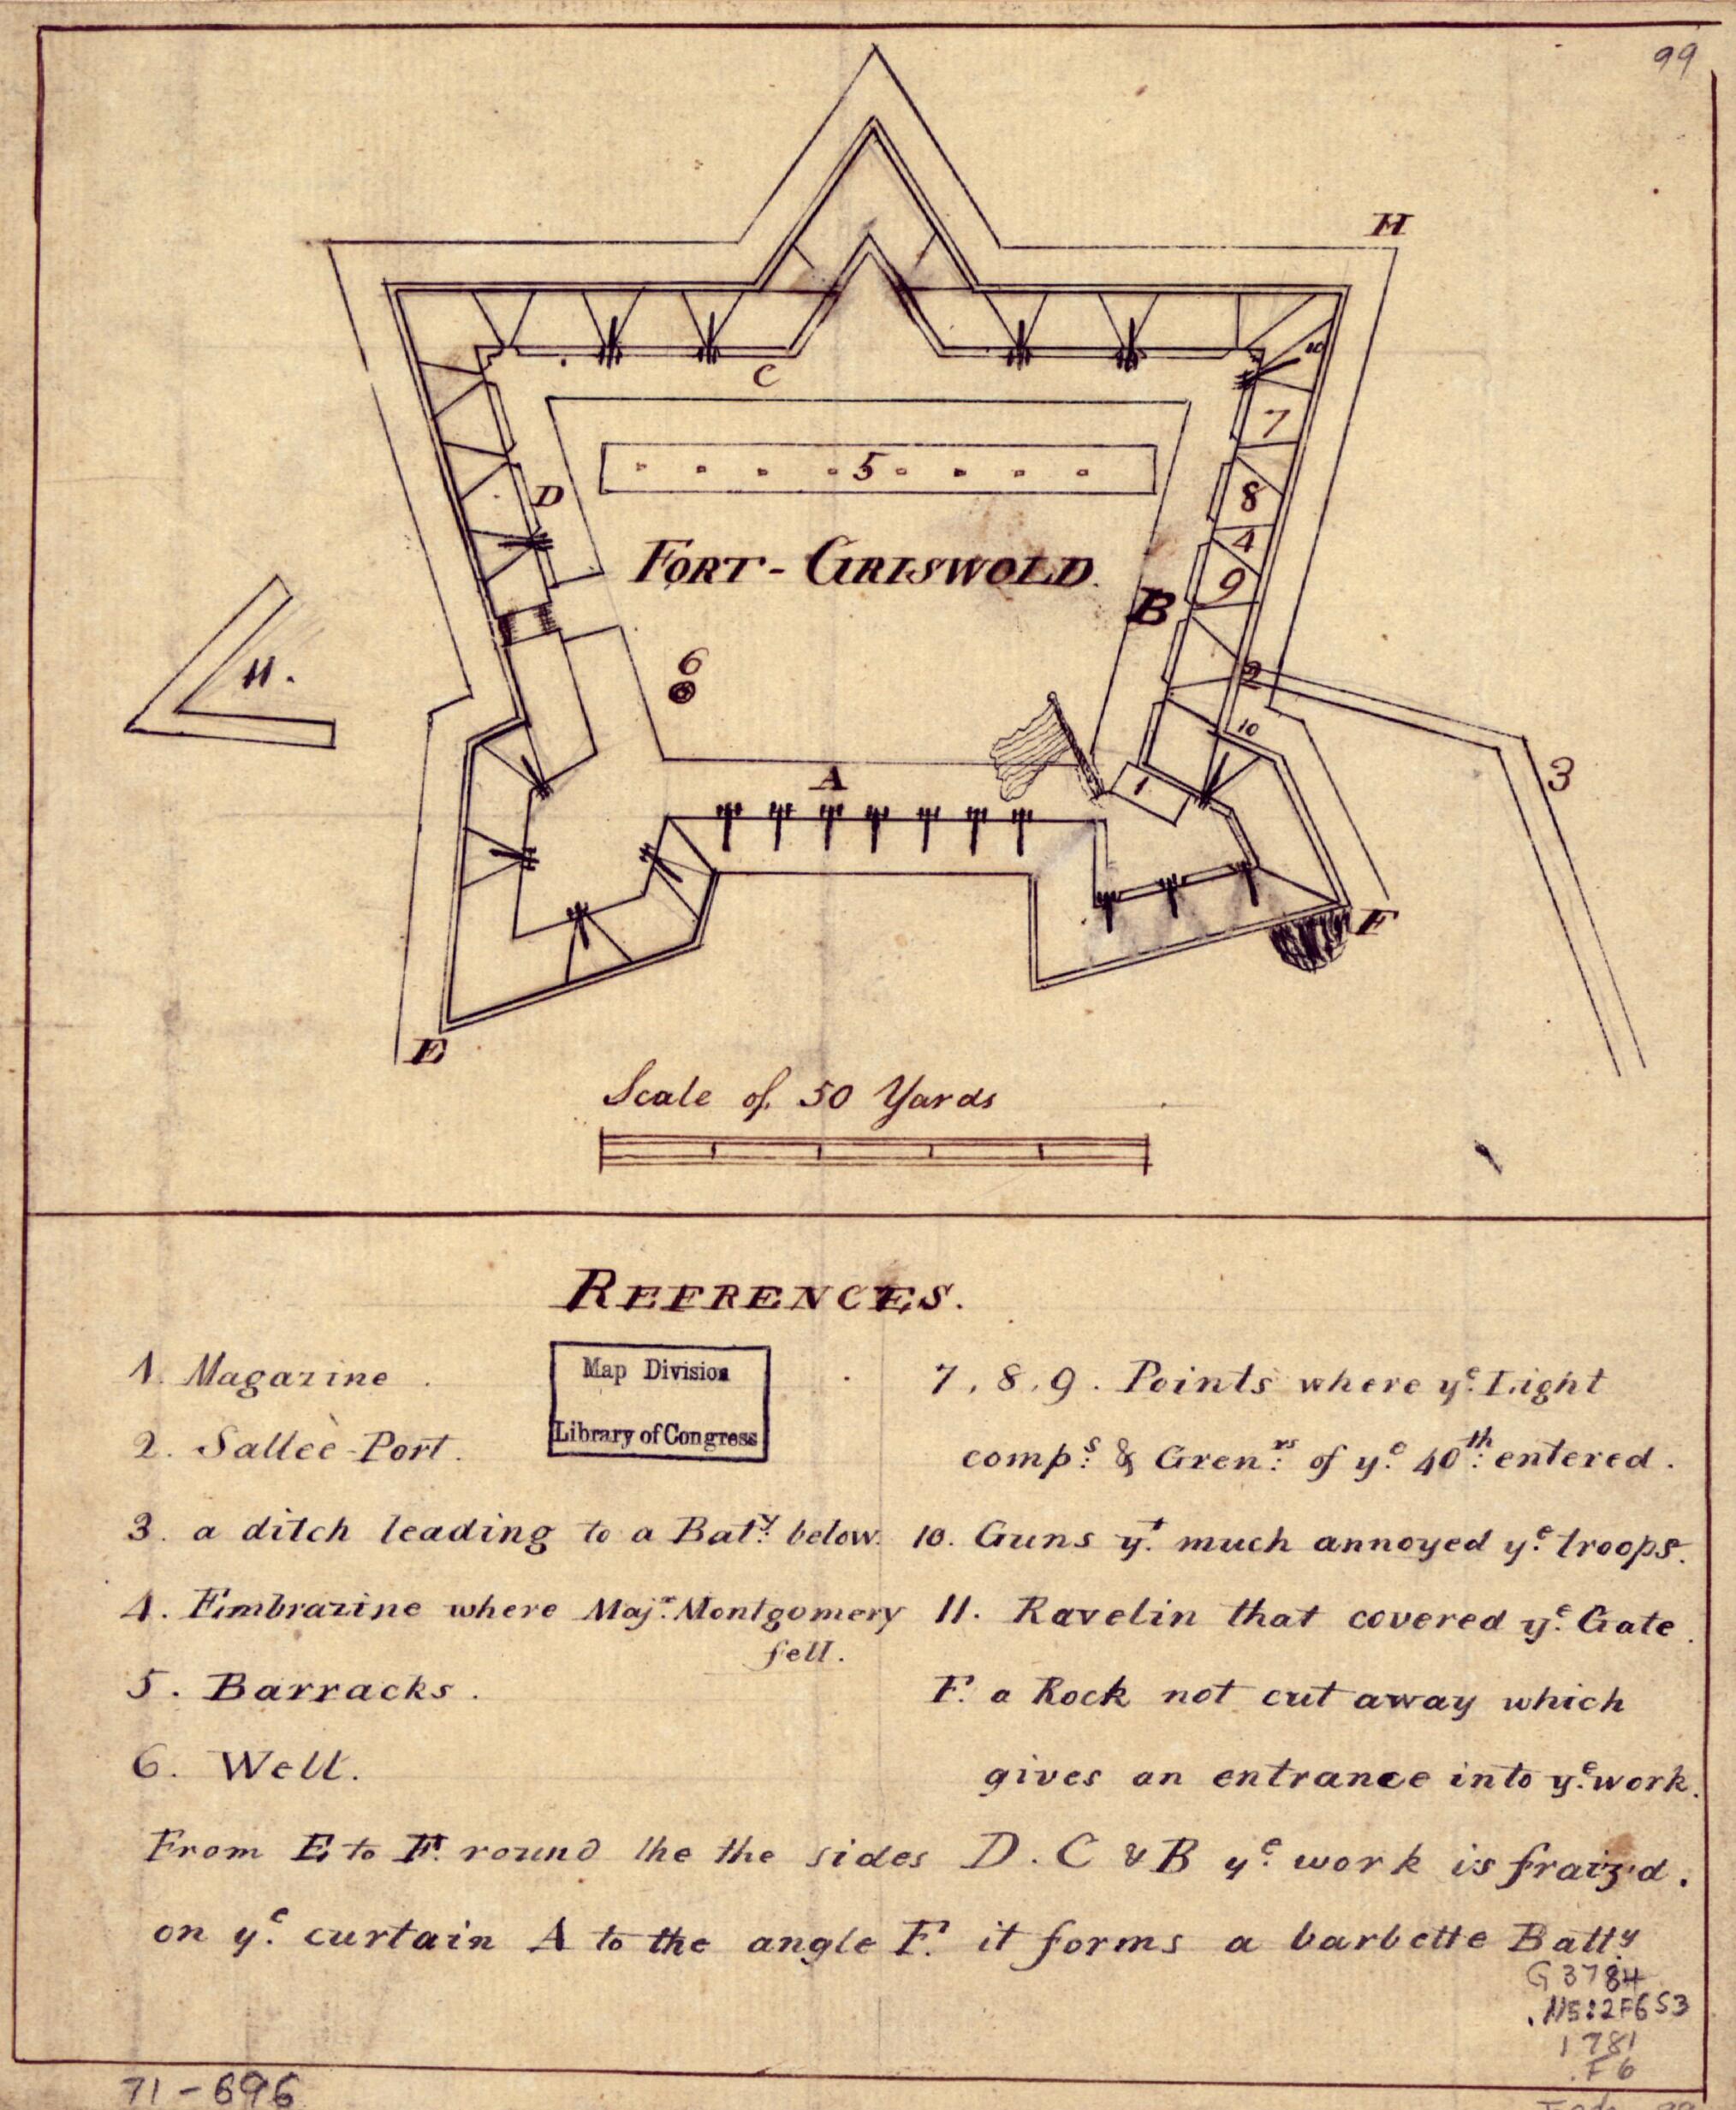 99
H
10
7
C
5
8
D
4
FORT - GRISWOLD.
9
B
11.
6
2
10
3
1
A
F
E
Scale of 50 Yards
REFERENCES.
1. Magazine .
Map Division
Library of Congress
2. Sallee-Port.
3. a ditch leading to a Bat.y below.
4. Embrazine where Maj.r Montgomery
fell.
5. Barracks.
6. Well.
7, 8, 9. Points where y.e Light
comp.s & Gren.rs of y.e 40.th entered.
10. Guns y.t much annoyed y.e troops.
11. Ravelin that covered y.e Gate.
F. a Rock not cut away which
gives an entrance into y.e work.
From E to F. round the the sides D. C & B y.e work is fraiz'd.
on y.e curtain A to the angle F. it forms a barbette Batt.y
G3784
.N5:2F6S3
1781
.F6
71-696